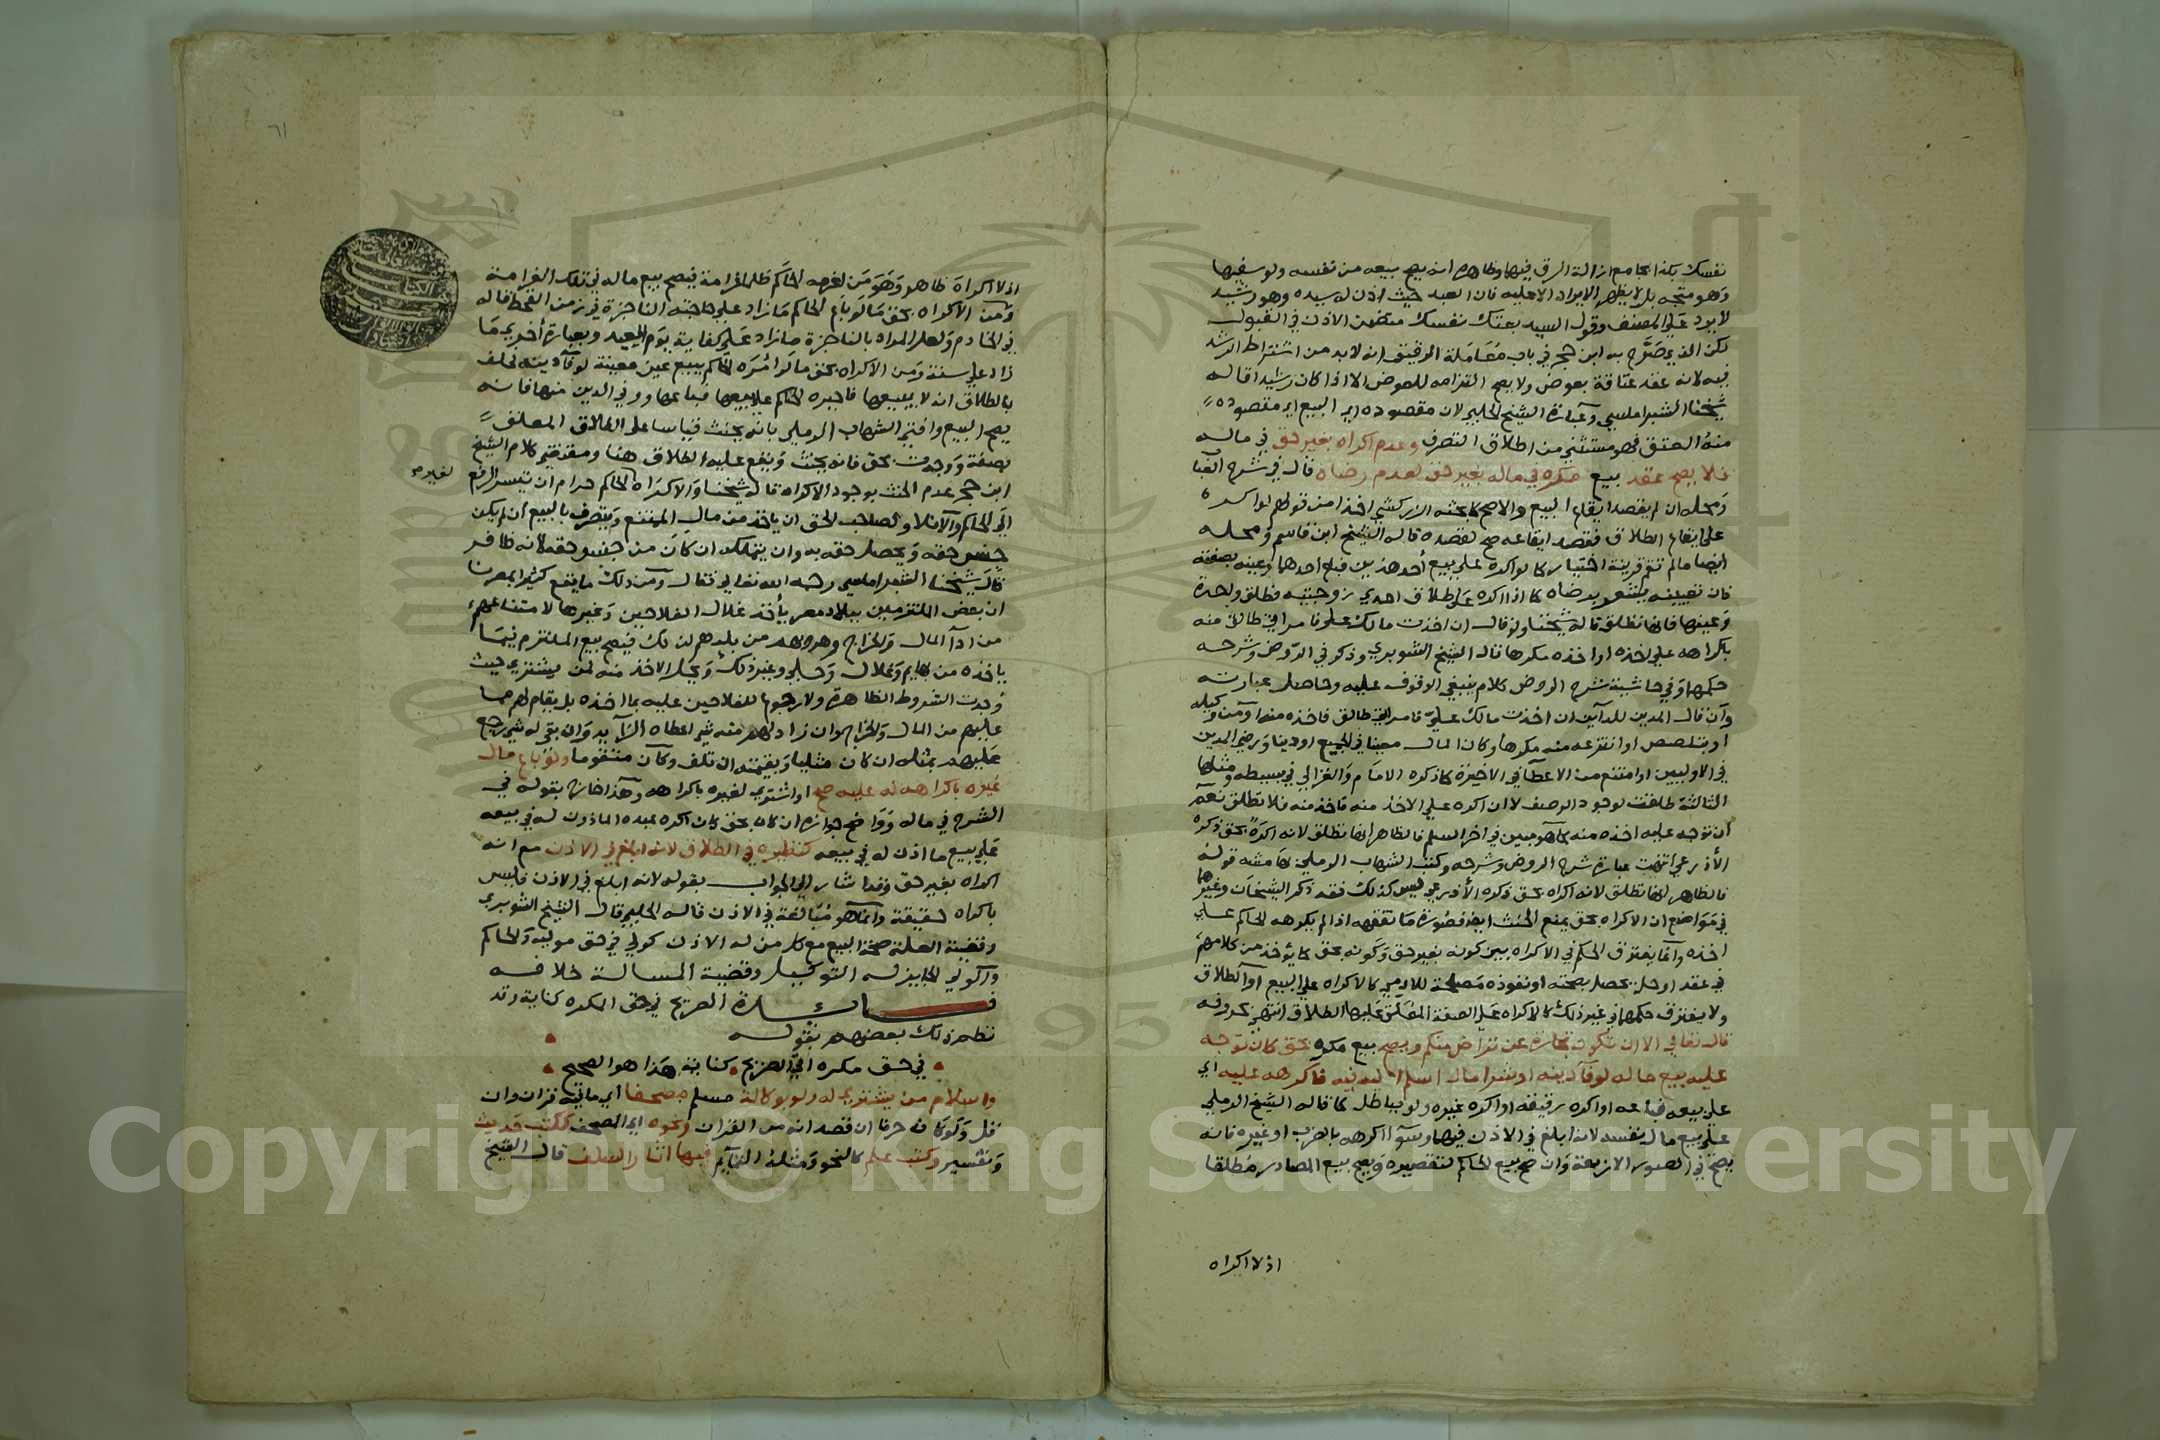 نفسك بكذا بجامع ازالة الرق فيها وظاهره انه يصح بيعه من نفسه ولو سفيها
وهو متجه بل لا يظهر الايراد الا عليه فان العبد حيث اذن له سيده وهو رشيد
لا يرد على المصنف وقول السيد بعتك نفسك متضمن الاذن في القبول
لكن الذي صرح به ابن حجر في باب معاملة الرقيق انه لا بد من اشتراط الرشد
فيه لانه عقد عتاقة بعوض ولا يصح التزامه للعوض الا اذا كان رشيدا قاله
شيخنا الشبراملسي وعبارة الشيخ الحلبي لان مقصوده اي البيع اي مقصوده
منه العتق فهو مستثنى من اطلاق التصرف وعدم اكراه بغير حق في ماله
فلا يصح عقد بيع مكره في ماله بغير حق لعدم رضاه قال في شرح العباب
ومحله ان لم يقصد ايقاع البيع والاصح كما بحثه الزركشي اخذا من قولهم لو اكره
على ايقاع الطلاق فقصد ايقاعه صح لقصده قاله الشيخ ابن قاسم ومحله
ايضا ما لم تقم قرينة اختيار كما لو اكره على بيع أحد هذين فباع احدهما وعينه بصفته
فان تعيينه يشعر برضاه كما اذا اكره على طلاق احدي زوجتيه فطلق واحدة
وعينها فانها تطلق قاله شيخنا ولو قال ان اخذت مالك علي فامراتي طالق منه
باكراهه على اخذه او اخذه مكرها قال الشيخ الشوبري وذكر في الروض وشرحه
حكمها وفي حاشية شرح الروض كلام ينبغي الوقوف عليه وحاصل عبارته
وان قال المدين للداين ان اخذت مالك علي فامراتي طالق فاخذه منه او من وكيله
او بتلصص او انتزعه منه مكرها وكان المال معينا في الجميع او دينا ورضي المدين
في الاوليين او امتنع من الاعطا في الاخيرة كما ذكره الامام والغزالي في بسيطه ومثلها
الثالثة طلقت لوجود الوصف لا ان اكره على الاخذ منه فاخذ منه فلا تطلق نعم
ان توجه عليه اخذه منه كما هو مبين في اخر السلم فالظاهر انها تطلق لانه اكره بحق ذكره
الأذرعي انتهت عبارة شرح الروض وشرحه وكتب الشهاب الرملي بهامشه قوله
فالظاهر انها تطلق لانه اكراه بحق ذكره الأذرعي ليس كذلك فقد ذكر الشيخان وغيرهما
في مواضع ان الاكراه بحق يمنع الحنث ايضا فصورة ما تفقهه اذا لم يكرهه الحاكم على
اخذه وانما يفترق الحكم في الاكراه بين كونه بغير حق وكونه بحق كما يؤخذ من كلامهم
في عقد او حل يحصل بصحته او نفوذه مصلحة للادمي كالاكراه على البيع او الطلاق
ولا يفترق حكمها في غير ذلك كالاكراه على الصفة المعلق عليها الطلاق انتهى بحروفه
قال تعالى الا ان تكون تجارة عن تراض منكم ويصح بيع مكره بحق كان توجه
عليه بيع ماله لوفا دينه او شرا مال اسلم اليه فيه فاكرهه عليه اي
على بيعه فباعه او اكره رقيقه او اكره غيره ولو بباطل كما قاله الشيخ الرملي
على بيع مال نفسه لانه ابلغ في الاذن فيها وسوآ اكرهه بالضرب او غيره فانه
يصح في الصور الاربعة وان صح بيع الحاكم لتقصيره ويصح بيع المصادر مطلقا
اذ لا اكراه
٦١
اذ لا اكراه ظاهر وهو من لزمه الحاكم ظلما غرامة فيصح بيع ماله في تلك الغرامة
ومن الاكراه بحق ما لو باع الحاكم ما زاد على حاجته الناجزة في زمن القحط قاله
في الخادم ولعل المراد بالناجزة ما زاد على كفاية يوم العيد وبعبارة أخرى ما
زاد على سنة ومن الاكراه بحق ما لو امره الحاكم ببيع عين معينة لوفا دينه فحلف
بالطلاق ان لا يبيعها فاجبره الحاكم على بيعها فباعها ووفى الدين منها فانه
يصح البيع وافتى الشهاب الرملي بانه يحنث قياسا على الطلاق المعلق
بصفة ووجدت بحق فانه يحنث ويقع عليه الطلاق هنا ومقتضى كلام الشيخ
ابن حجر عدم الحنث بوجود الاكراه قاله شيخنا والاكراه لغير الحاكم حرام ان تيسر الرفع
الى الحاكم والا فلا ولصاحب الحق ان ياخذ من مال الممتنع ويتصرف بالبيع ان لم يكن
جنس حقه ويحصل حقه به وان يتملك ان كان من جنس حقه لانه ظافر
قال شيخنا الشبراملسي رحمه الله تعالى فقال ومن ذلك ما يقع كثيرا بمصرنا
ان بعض الملتزمين ببلاد مصر يأخذ غلال الفلاحين وغيرها لامتناعهم
من ادآ المال والخراج وهروبهم من بلدهم لذلك فيصح بيع الملتزم فيما
ياخذه من بهايم وغلال وحلي وغير ذلك ويحل الاخذ منه لمن يشتري حيث
وجدت الشروط الظاهرة ولا رجوع للفلاحين عليه بما اخذه بل يقام لهم مما
عليهم من المال والخراج وان زاد لهم منه شي اعطاه الزآيد وان بقي له شي رجع
عليهم بمثله ان كان مثليا وبقيمته ان تلف وكان متقوما ولو باع مال
غيره باكراهه له عليه صح او اشترى لغيره باكراهه وهذا خارج بقوله في
الشرح في ماله وواضح جوازه ان كان بحق كان اكره عبده الماذون له في بيعه
على بيع ما اذن له في بيعه كنظيره في الطلاق لانه ابلغ في الاذن مع انه
اكراه بغير حق وقد اشار الى الجواب بقوله لانه ابلغ في الاذن فليس
باكراه حقيقة وانما هو مبالغة في الاذن قاله الحلبي قال الشيخ الشوبري
وقضية العلة صحة البيع مع كل من له الاذن كولي في حق موليه والحاكم
والولي الجايز له التوكيل وقضية المسالة خلافه
فــائــدة الصريح في حق المكره كناية وقد
نظم ذلك بعضهم بقوله
في حق مكره اتى الصريح كناية هذا هو الصحيح
واسلام من يشتري له ولو بوكالة مسلم مصحفا اي ما فيه قرآن وان
قل ولو كان حرفا ان قصد انه من القرآن ونحوه اي المصحف ككتب حديث
وتفسير وكتب علم كالنحو ومثله التمآيم فيها آثار السلف قال الشيخ